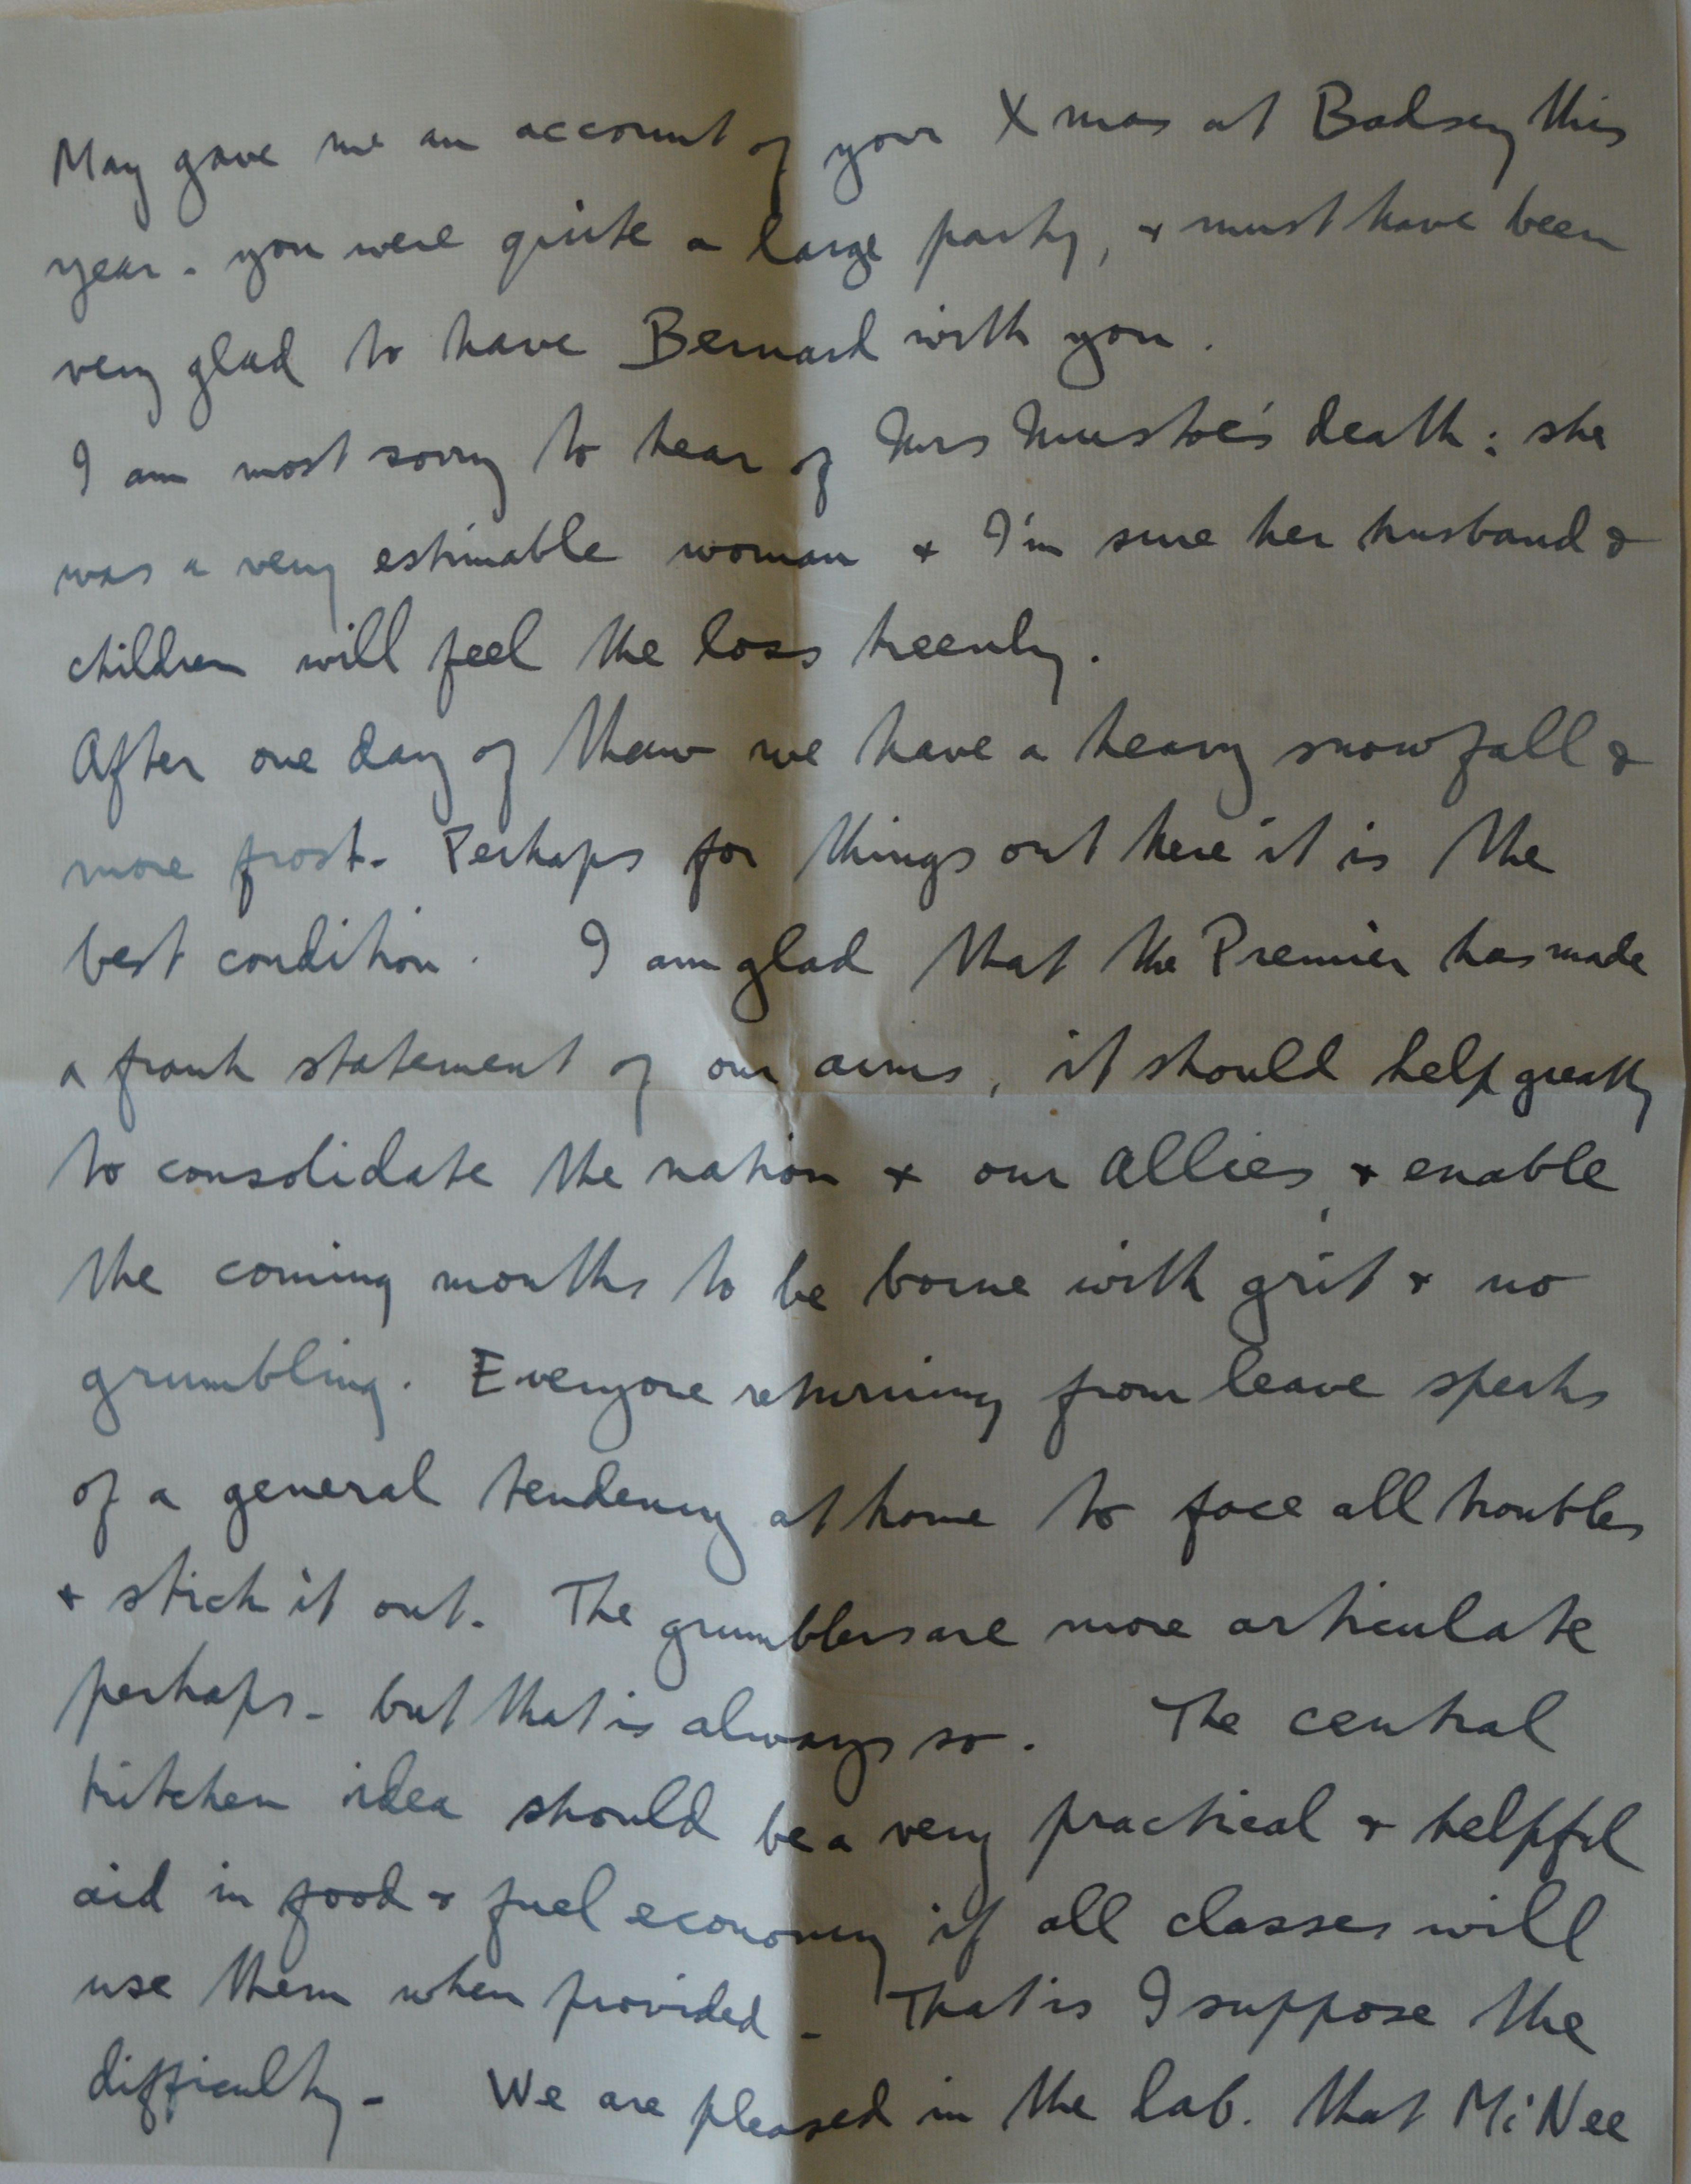 May gave me an account of your Xmas at Badsey this
year - you were quite a large party, & must have been
very glad to have Bernard with you.
I am most sorry to hear of Mrs Mustoe's death: she
was a very estimable woman & I'm sure her husband &
children will feel the loss keenly.
After one day of thaw we have a heavy snowfall &
more frost. Perhaps for things out here it is the
best condition. I am glad that the Premier has made
a frank statement of our aims, it should help greatly
to consolidate the nation & our Allies, & enable
the coming months to be borne with grit & no
grumbling. Everyone returning from leave speaks
of a general tendency at home to face all troubles
& stick it out. The grumblers are more articulate
perhaps - but that is always so. The central
kitchen idea should be a very practical & helpful
aid in food & fuel economy if all classes will
use them when provided - That is I suppose the
difficulty - We are pleased in the lab. that McNee